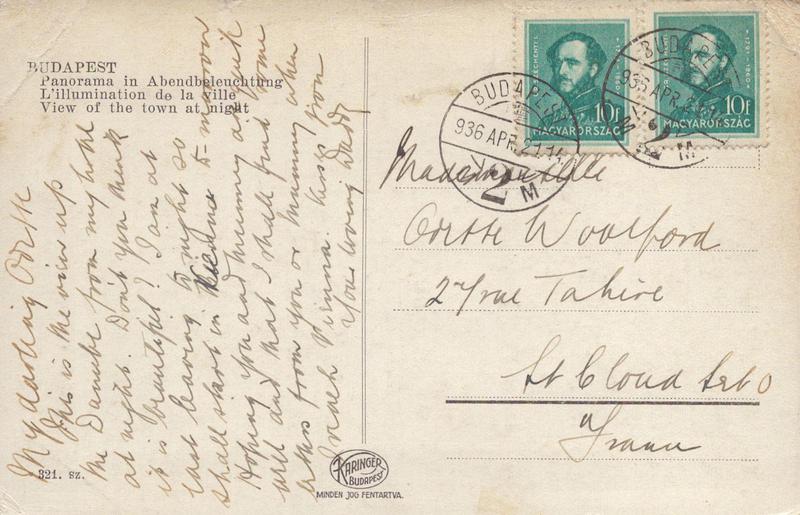 BUDAPEST
Panorama in Abendbeleuchtung
L'illumination de la ville
View of the town at night
My darling Odette
This is the view up
the Danube from my hotel
at night. Don't you think
it is beautiful? I am at
last leaving to-night so
shall start in to-morrow
Hoping you and mummy are quite
well and that I shall find some
letters from you or mummy when
I reach Vienna. Kisses from
Your loving Daddy
321. sz.
KARINGER
BUDAPEST
MINDEN JOG FENTARTVA.
SZÉCHENYI I.
1791-1860
10f
MAGYARORSZÁG
1791-1860
10f
MAGYARORSZÁG
BUDAPEST
936 APR. 21. 14
2
M
BUDAPEST
936 APR. 21
M
Mademoiselle
Odette Woolford
27 rue Tahère
St Cloud S et O
France